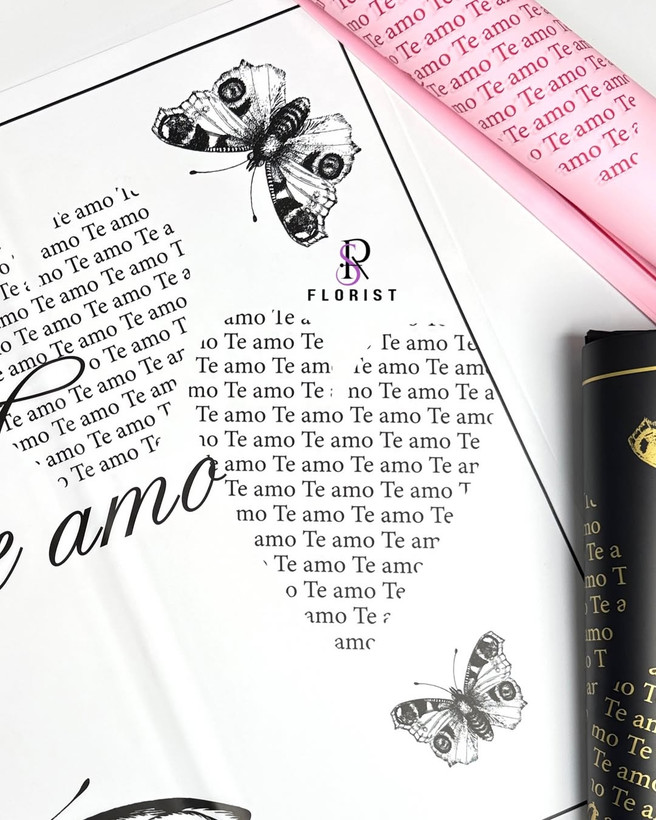 Te amo Te amo Te amo
Te amo Te amo Te amo
Te amo Te amo Te amo
Te amo Te amo Te amo
Te amo Te amo Te
Te amo Te amo Te
Te amo Te amo
Te amo Te
amo
amo Te
amo Te amo
amo Te amo Te a
amo Te amo Te
amo Te amo Te a
amo Te amo Te amo
amo Te amo Te
amo
Te amo Te amo
Te amo Te amo
amo Te amo
Te amo
amo
SR
FLORIST
amo Te a
Te amo Te Te amo Te
Te amo Te am Te amo Te am
mo Te amo Te amo Te amo Te a
Te amo Te amo Te amo Te amo
no Te amo Te amo Te amo Te
amo Te amo Te amo Te ar
Te amo Te amo Te amo T
mo Te amo Te amo Te
amo Te amo Te am
Te amo Te amo
o Te amo Te
amo Te a
amo
Te a
mo T
Te a
amo
o T
Te am
mo Te
Te amo
Te am